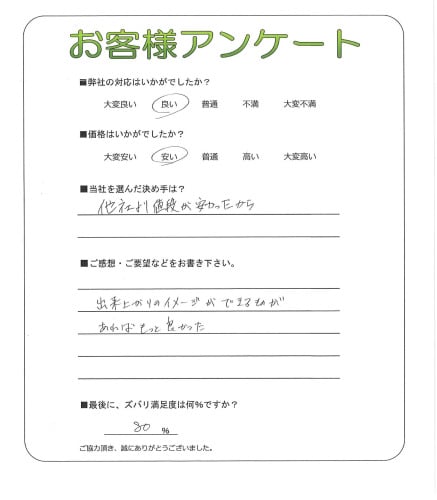 お客様アンケート
■弊社の対応はいかがでしたか？
大変良い 良い 普通 不満 大変不満
■価格はいかがでしたか？
大変安い 安い 普通 高い 大変高い
■当社を選んだ決め手は？
他社より値段が安かったから
■ご感想・ご要望などをお書き下さい。
出来上がりのイメージができるものが
あればもっと良かった
■最後に、ズバリ満足度は何％ですか？
80 ％
ご協力頂き、誠にありがとうございました。